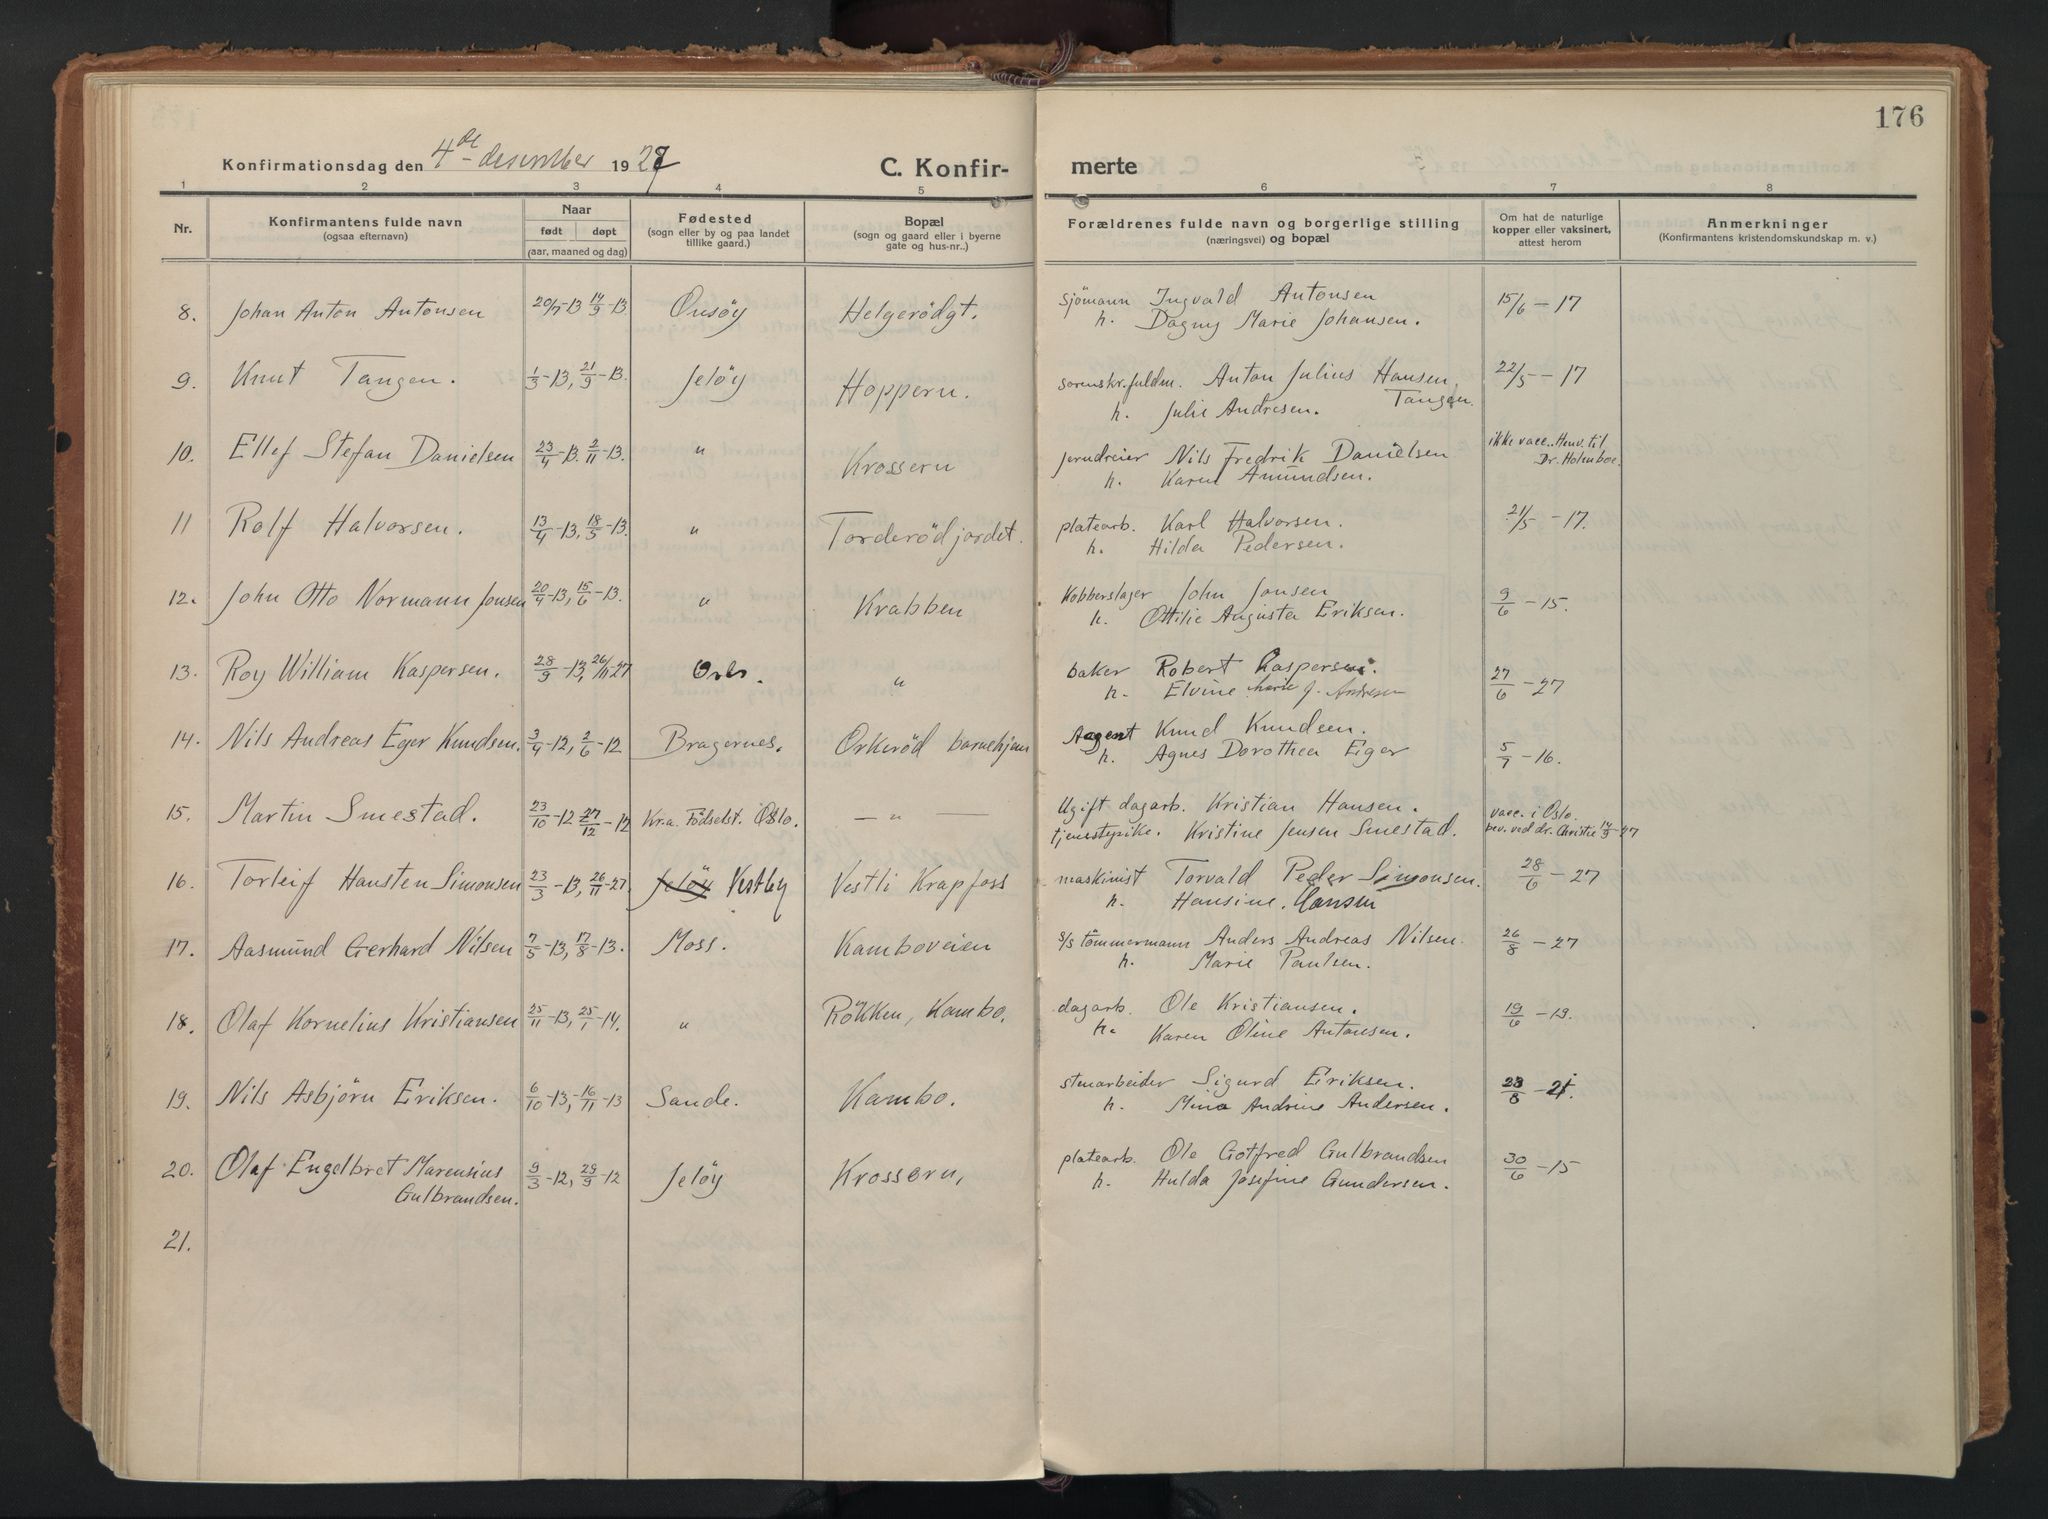 176
Konfirmationsdag den 4de desember 1927 C. Konfir- merte
1 2 3 4 5 6 7 8
Nr. Konfirmantens fulde navn (ogsaa efternavn) Naar født døpt (aar, maaned og dag) Fødested (sogn eller by og paa landet tillike gaard.) Bopæl (sogn og gaard eller i byerne gate og hus-nr..) Forældrenes fulde navn og borgerlige stilling (næringsvei) og bopæl Om hat de naturlige kopper eller vaksinert, attest herom Anmerkninger (Konfirmantens kristendomskundskap m. v.)
8. Johan Anton Antonsen 20/7-13 14/9-13. Onsöy Helgerödgt. sjömann Ingvald Antonsen 15/6-17
h. Dagny Marie Johansen.
9. Knut Tangen. 1/3-13, 21/9-13. Jelöy Hoppern. sorenskr.fuldm. Anton Julius Hansen Tangen. 22/5-17
h. Julie Andresen.
10. Ellef Stefan Danielsen 23/4-13. 2/11-13. " Krossern jerndreier Nils Fredrik Danielsen ikke vacc. Henv. til
h. Karen Amundsen. Dr. Holmboe.
11 Rolf Halvorsen. 13/4-13, 18/5-13. " Torderödjordet. platearb. Karl Halvorsen. 21/5-17.
h. Hilda Pedersen.
12. John Otto Normann Jonsen 20/4-13, 15/6-13. " Krabben Kobberslager John Jonsen 9/6-15.
h. Ottilie Augusta Eriksen.
13. Roy William Kaspersen. 28/9-13, 26/11-27 Oslo. " baker Robert Kaspersen. 27/6-27
h. Elvine Marie J. Andresen
14. Nils Andreas Eger Knudsen. 3/4-12, 2/6-12 Bragernes. Orkeröd barnehjem Agent Knud Knudsen.
h. Agnes Dorothea Eger 5/7-16.
15. Martin Smestad. 23/10-12 27/12-12 Kr.a. Födselst. Oslo. — " — Ugift dagarb. Kristian Hansen. vacc. i Oslo.
tjenestepike. Kristine Jensen Smestad. bev. ved dr. Christie 14/9-27
16. Torleif Hansten Simonsen 23/3-13, 26/11-27. Jelöy Vestby Vestli Krapfoss maskinist Torvald Peder Simonsen. 28/6-27
h. Hansine Hansen
17. Aasmund Gerhard Nilsen 7/5-13, 17/8-13. Moss. Kamboveien s/s tömmermann Anders Andreas Nilsen. 26/8-27
h. Marie Paulsen.
18. Olaf Kornelius Kristiansen 25/11-13, 25/1-14. " Rökken, Kambo. dagarb. Ole Kristiansen. 19/6-19.
h. Karen Oline Antonsen.
19. Nils Asbjörn Eriksen. 6/10-13, 16/11-13 Sande. Kambo. stenarbeider Sigurd Eriksen. 23/8-21.
h. Mina Andrine Andersen.
20. Olaf Engelbret Marensius 9/3-12, 29/9-12 Jelöy Krossern, platearb. Ole Gotfred Gulbrandsen 30/6-15
Gulbrandsen. h. Hulda Josefine Gundersen.
21.